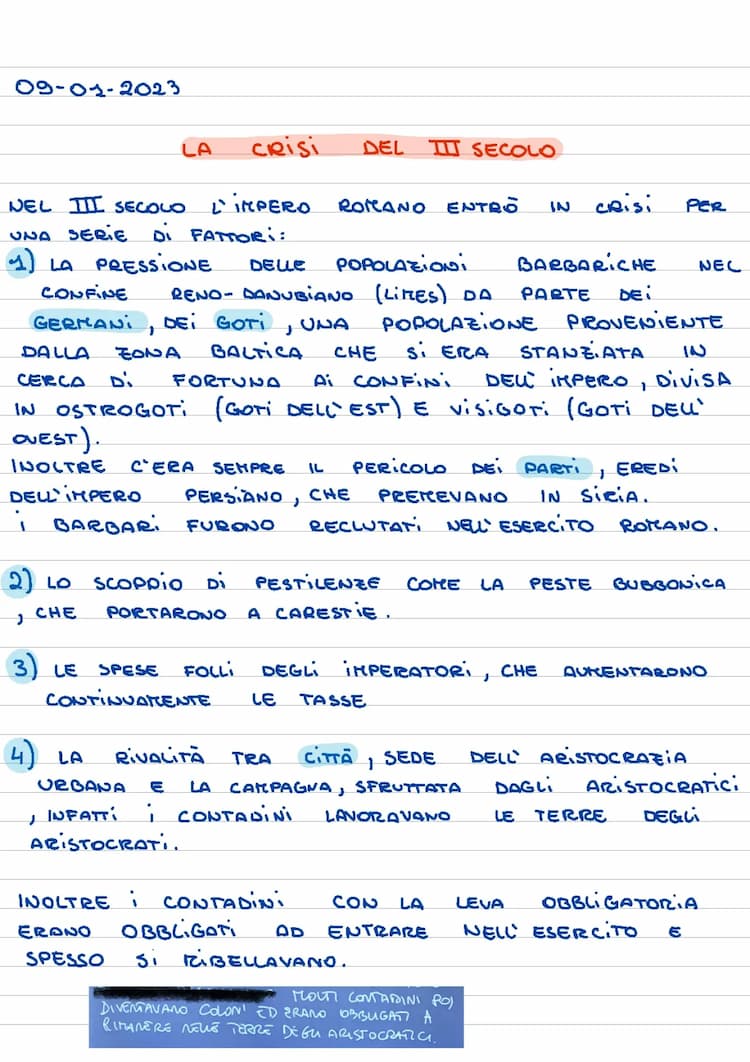 09-01-2023
LA CRISI DEL III SECOLO
NEL III SECOLO L'IMPERO ROMANO ENTRÒ IN CRISI PER
UNA SERIE DI FATTORI:
1) LA PRESSIONE DELLE POPOLAZIONI BARBARICHE NEL
CONFINE RENO-DANUBIANO (LIMES) DA PARTE DEI
GERMANI, DEI GOTI, UNA POPOLAZIONE PROVENIENTE
DALLA ZONA BALTICA CHE SI ERA STANZIATA IN
CERCA DI FORTUNA AI CONFINI DELL'IMPERO, DIVISA
IN OSTROGOTI (GOTI DELL'EST) E VISIGOTI (GOTI DELL'
OVEST).
INOLTRE C'ERA SEMPRE IL PERICOLO DEI PARTI, EREDI
DELL'IMPERO PERSIANO, CHE PREMEVANO IN SIRIA.
I BARBARI FURONO RECLUTATI NELL'ESERCITO ROMANO.
2) LO SCOPPIO DI PESTILENZE COME LA PESTE BUBBONICA
, CHE PORTARONO A CARESTIE.
3) LE SPESE FOLLI DEGLI IMPERATORI, CHE AUMENTARONO
CONTINUAMENTE LE TASSE
4) LA RIVALITÀ TRA CITTÀ, SEDE DELL'ARISTOCRAZIA
URBANA E LA CAMPAGNA, SFRUTTATA DAGLI ARISTOCRATICI
, INFATTI I CONTADINI LAVORAVANO LE TERRE DEGLI
ARISTOCRATI.
INOLTRE I CONTADINI CON LA LEVA OBBLIGATORIA
ERANO OBBLIGATI AD ENTRARE NELL'ESERCITO E
SPESSO SI RIBELLAVANO.
MOLTI CONTADINI POI
DIVENTAVANO COLONI ED ERANO OBBLIGATI A
RIMANERE NELLE TERRE DEGLI ARISTOCRATICI.